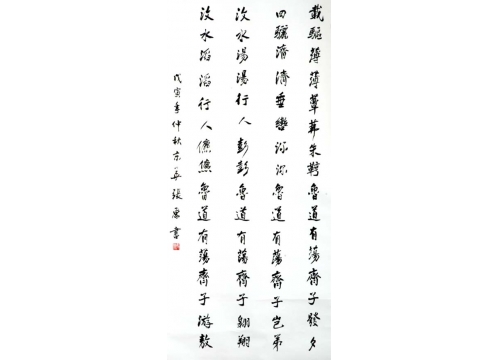 載驅薄薄簟茀朱鞹魯道有蕩齊子發夕
四驪濟濟垂轡濔濔魯道有蕩齊子豈弟
汶水湯湯行人彭彭魯道有蕩齊子翱翔
汶水滔滔行人儦儦魯道有蕩齊子游敖
戊寅年仲秋京華張書